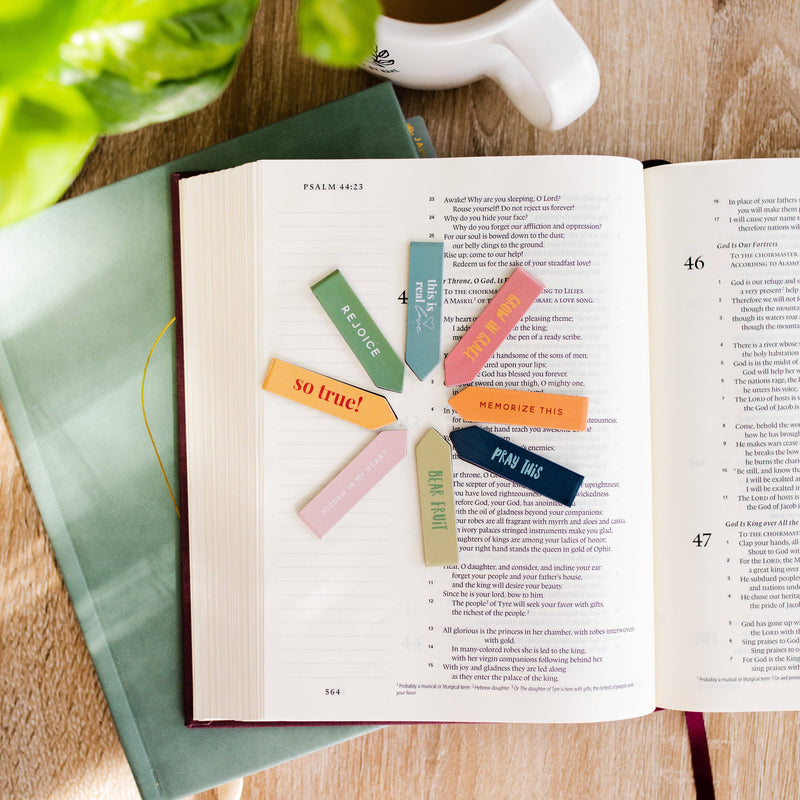 PSALM 44:23
23 Awake! Why are you sleeping, O Lord?
Rouse yourself! Do not reject us forever!
24 Why do you hide your face?
Why do you forget our affliction and oppression?
25 For our soul is bowed down to the dust;
our belly clings to the ground.
26 Rise up; come to our help!
Redeem us for the sake of your steadfast love!
r Throne, O God, Is
TO THE CHOIRMAS TO LILIES.
A MASKIL OF ORAH; A LOVE SONG.
My heart pleasing theme;
I add to the king;
my pen of a ready scribe.
handsome of the sons of men;
red upon your lips;
God has blessed you forever.
sword on your thigh, O mighty one,
righteousness;
hand teach you awesome
enemies
throne, O God,
The scepter of your king
you have loved righteousness wickedness.
fore God, your God, has anointed
with the oil of gladness beyond your companions;
ur robes are all fragrant with myrrh and aloes and cassia.
m ivory palaces stringed instruments make you glad;
ughters of kings are among your ladies of honor;
your right hand stands the queen in gold of Ophir.
Hear, O daughter, and consider, and incline your ear:
11 forget your people and your father's house,
and the king will desire your beauty.
Since he is your lord, bow to him.
12 The people² of Tyre will seek your favor with gifts,
the richest of the people.³
13 All glorious is the princess in her chamber, with robes interwoven
with gold.
14 In many-colored robes she is led to the king,
with her virgin companions following behind her.
15 With joy and gladness they are led along
as they enter the palace of the king.
564
¹ Probably a musical or liturgical term ² Hebrew daughter ³ Or The daughter of Tyre is here with gifts, the richest of people seek
your favor
this is
real love
GROW IN GRACE
MEMORIZE THIS
PRAY THIS
BEAR FRUIT
HIDDEN IN MY HEART
so true!
REJOICE
16 In place of your fathers
you will make them p
17 I will cause your name to
therefore nations wil
God Is Our Fortress
46 TO THE CHOIRMASTER.
ACCORDING TO ALAMO
1 God is our refuge and s
a very present help
2 Therefore we will not f
though the mountain
3 though its waters roar a
though the mountain
4 There is a river whose s
the holy habitation
5 God is in the midst of
God will help her w
6 The nations rage, the k
he utters his voice, t
7 The LORD of hosts is
the God of Jacob is
8 Come, behold the wo
how he has brough
9 He makes wars cease
he breaks the bow
he burns the chari
10 "Be still, and know tha
I will be exalted a
I will be exalted in
11 The LORD of hosts is
the God of Jacob is
God Is King over All the
47 TO THE CHOIRMASTER.
1 Clap your hands, all
Shout to God wit
2 For the LORD, the M
a great king over
3 He subdued peoples
and nations unde
4 He chose our heritag
the pride of Jacob
5 God has gone up wit
the LORD with th
6 Sing praises to God,
Sing praises to ou
7 For God is the King
sing praises with
¹ Probably a musical or liturgical term ² Or well proven